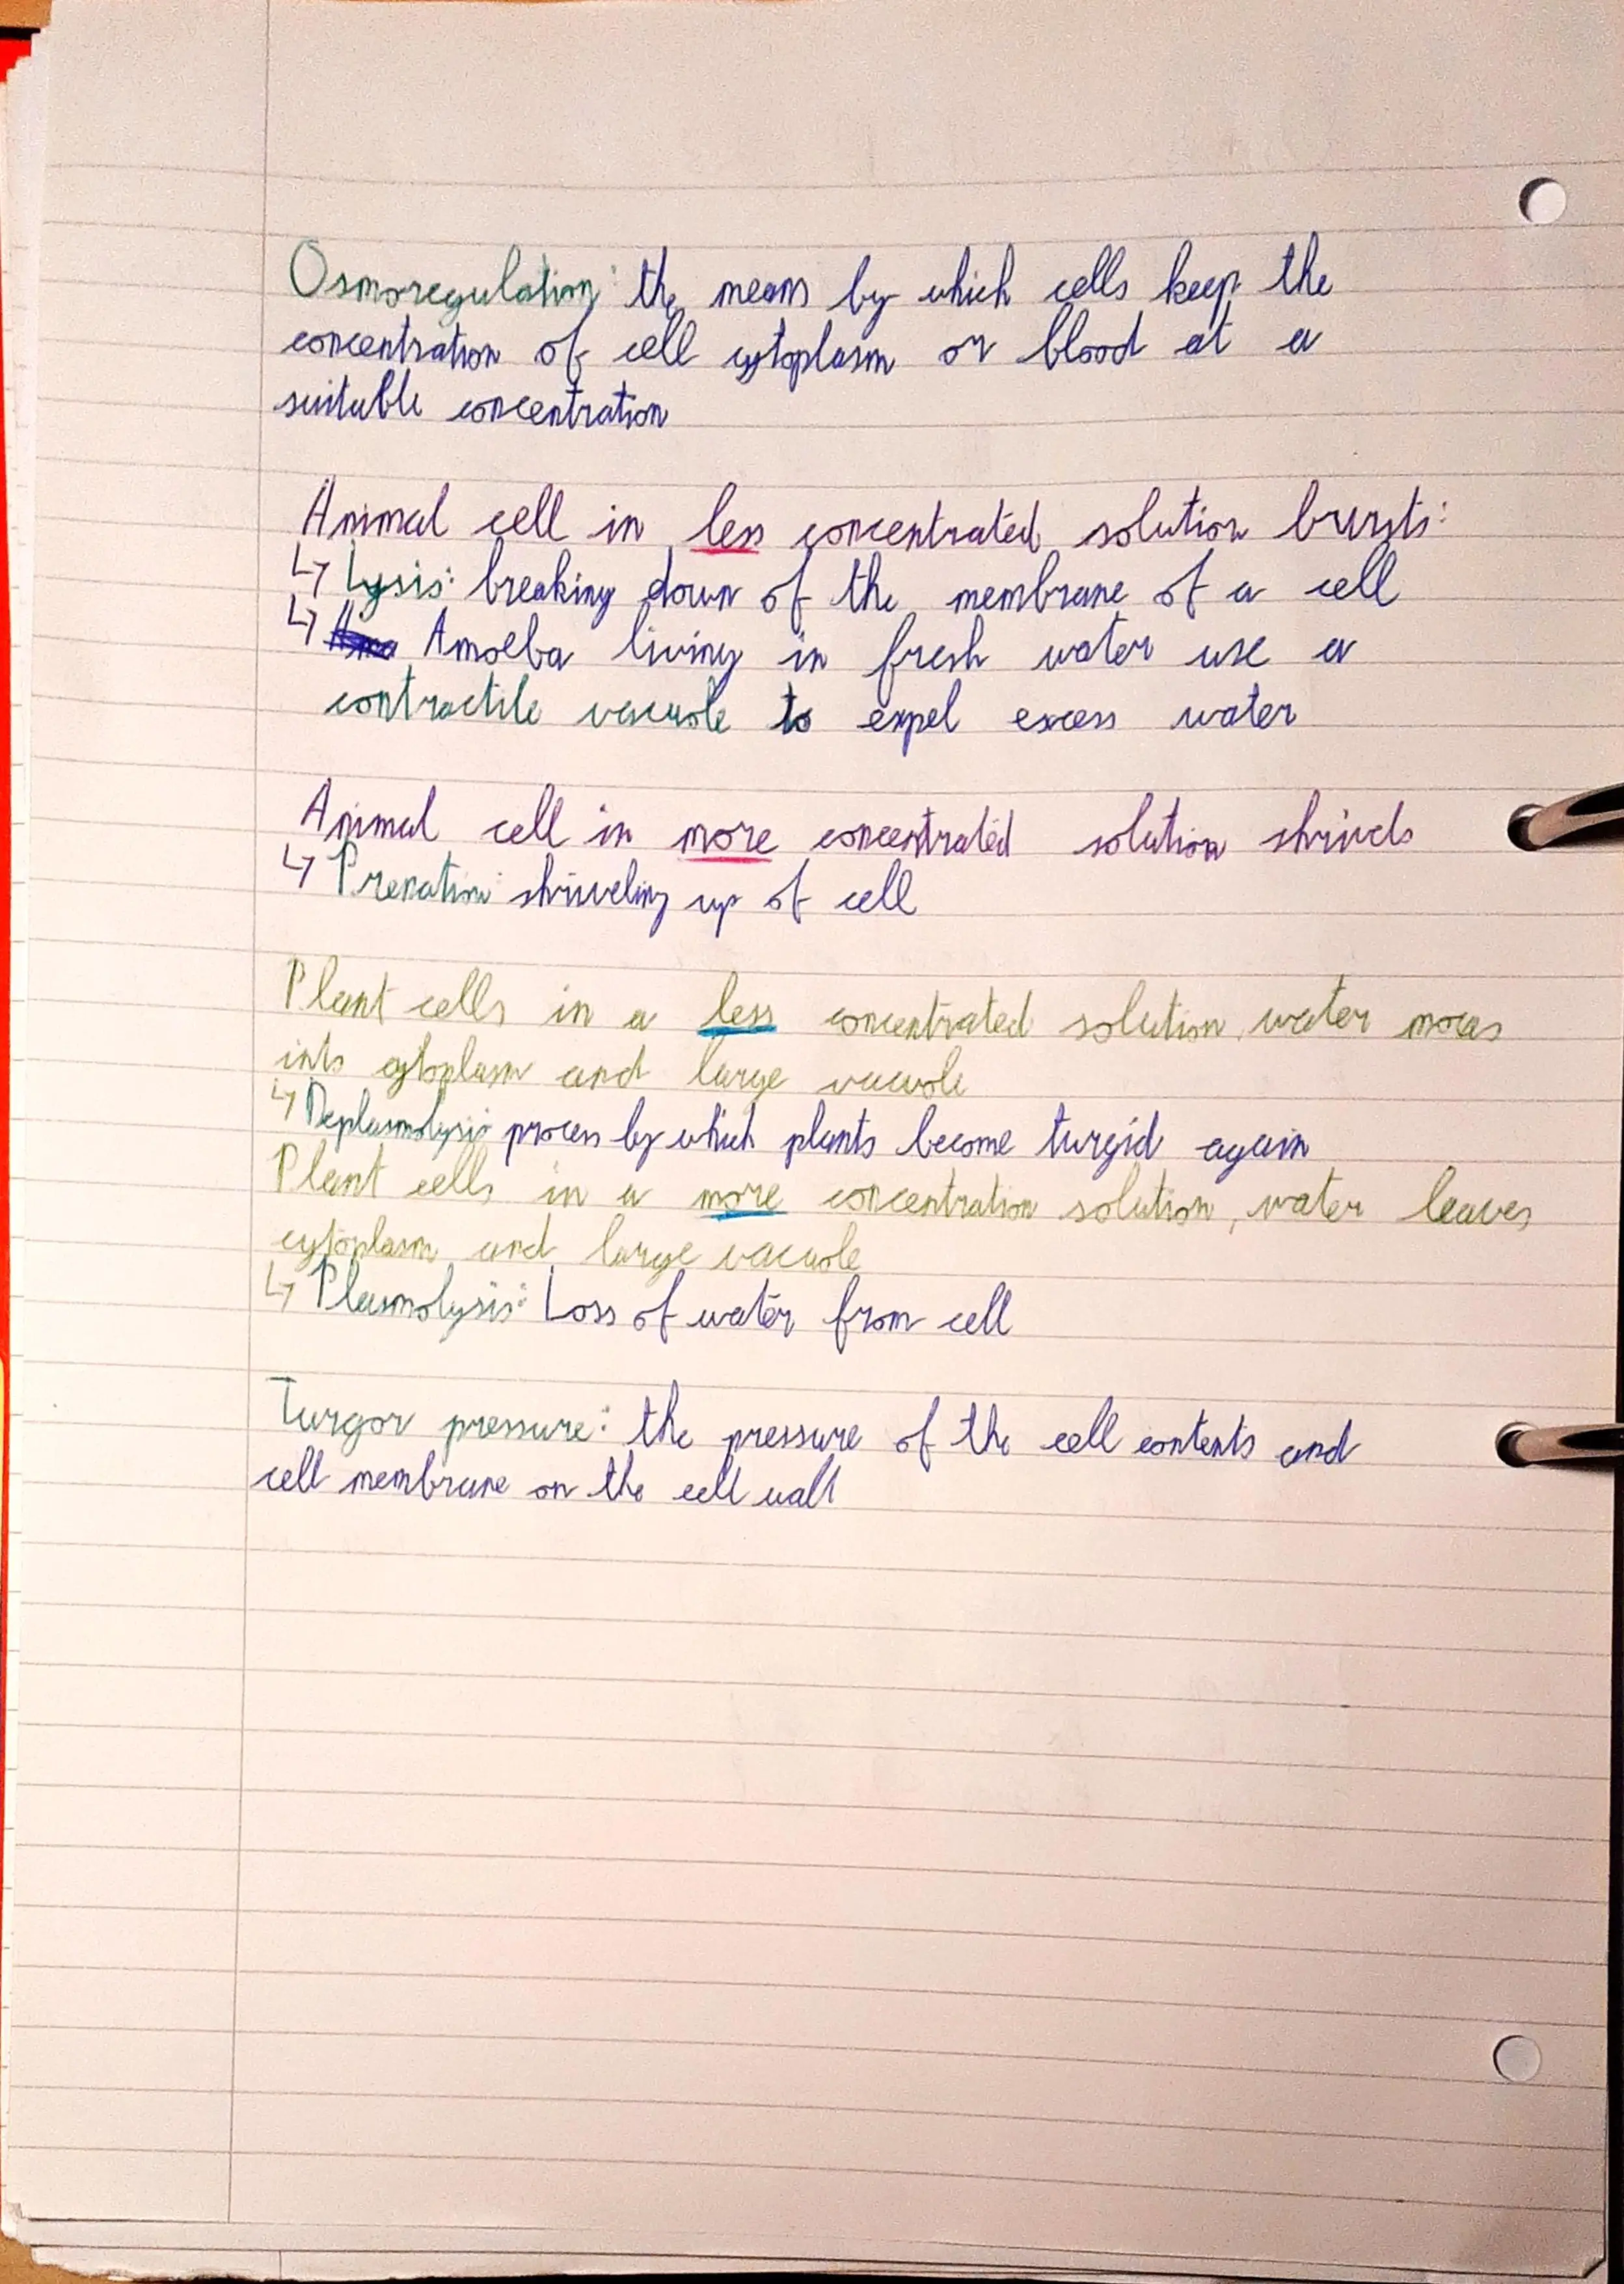 Osmoregulation: the means by which cells keep the
concentration of cell cytoplasm or blood at a
suitable concentration
Animal cell in less concentrated solution bursts:
↳ Lysis: breaking down of the membrane of a cell
↳ Amoeba living in fresh water use a
contractile vacuole to expel excess water
Animal cell in more concentrated solution shrivels
↳ Prenation: shriveling up of cell
Plant cells in a less concentrated solution, water moves
into cytoplasm and large vacuole
↳ Deplasmolysis: process by which plants become turgid again
Plant cells in a more concentration solution, water leaves
cytoplasm and large vacuole
↳ Plasmolysis: Loss of water from cell
Turgor pressure: the pressure of the cell contents and
cell membrane on the cell wall